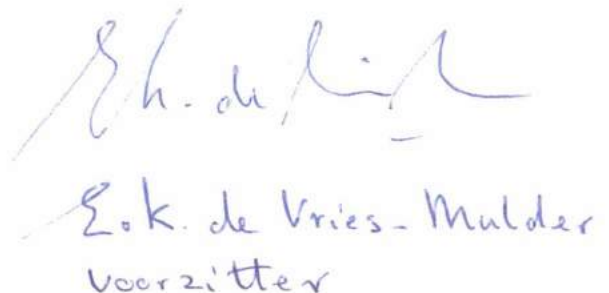 E.K. de Vries-Mulder
voorzitter